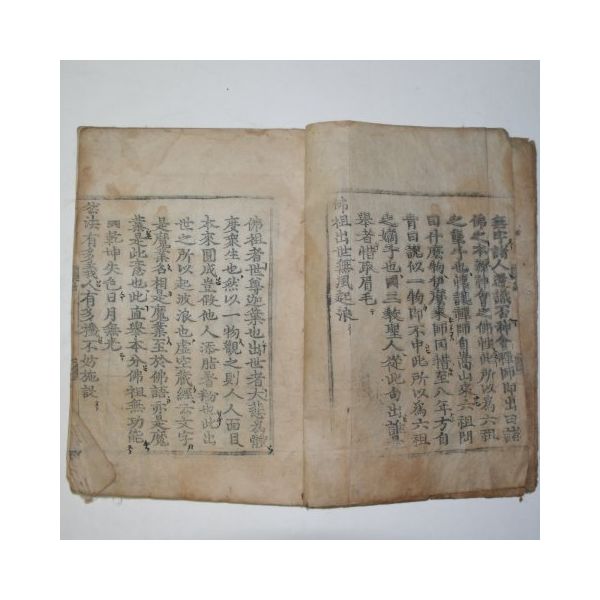 諸人還識否神會禪師即出曰諸
佛之本源神會之佛性此所以爲六祖
之孽子也懷讓禪師自嵩山來六祖問
曰什麽物伊麽來師罔措至八年方自
肯曰說似一物即不中此所以爲六祖
之嫡子也三敎聖人從此句出誰是
擧者惜取眉毛
佛祖出世無風起浪
佛祖者世尊迦葉也出世者大悲爲體
度衆生也然以一物觀之則人人面目
本來圓成豈假他人添脂着粉也此出
世之所以起波浪也虛空藏經云文字
是魔業名相是魔業至於佛語亦是魔
業是此意也此直擧本分佛祖無功能
乾坤失色日月無光
然法有多義人有多機不妨施設